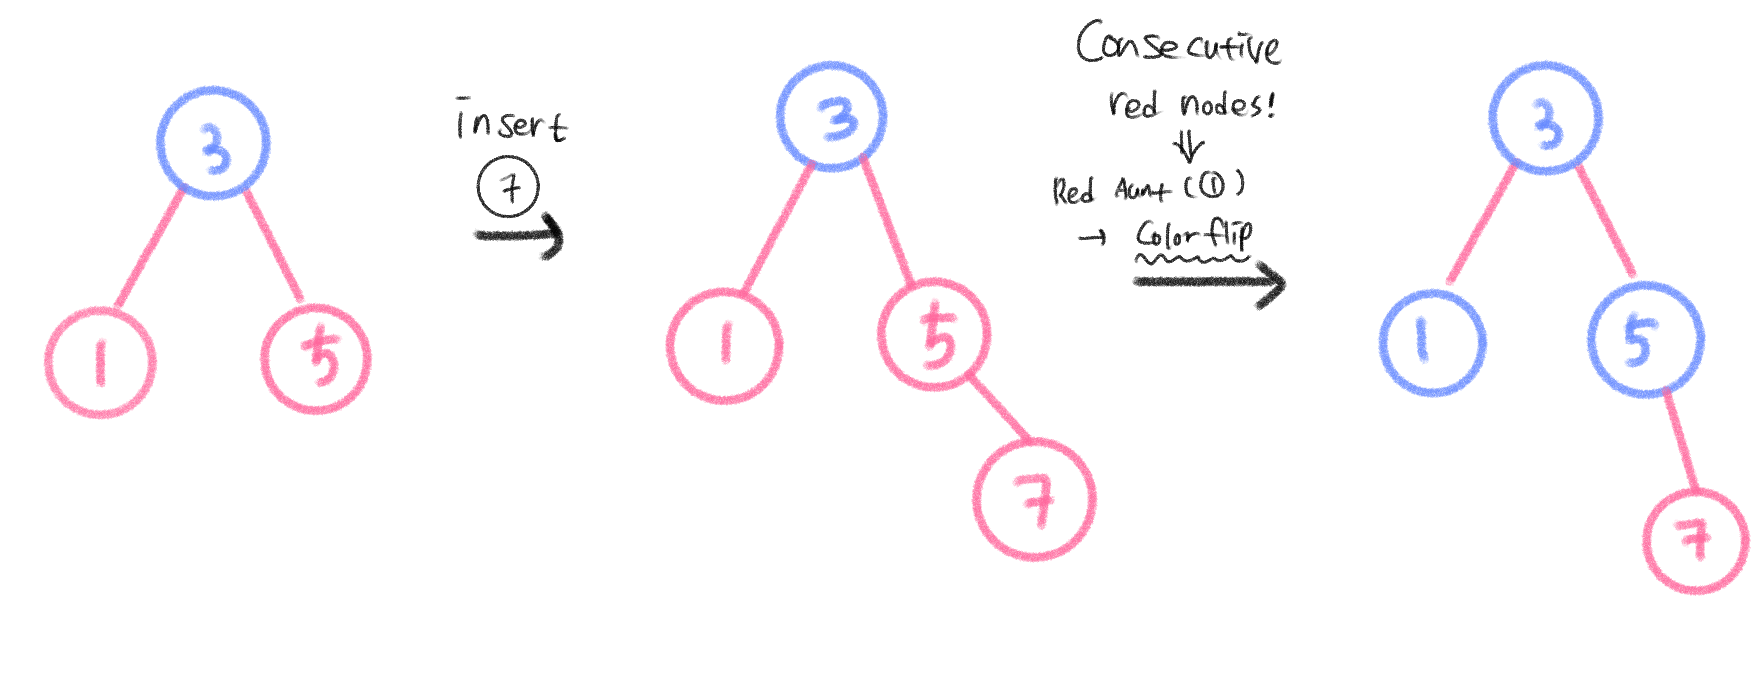 3
1
5
insert
7
3
1
5
7
Consecutive
red nodes!
⇓
Red Aunt (①)
→ Color flip
3
1
5
7